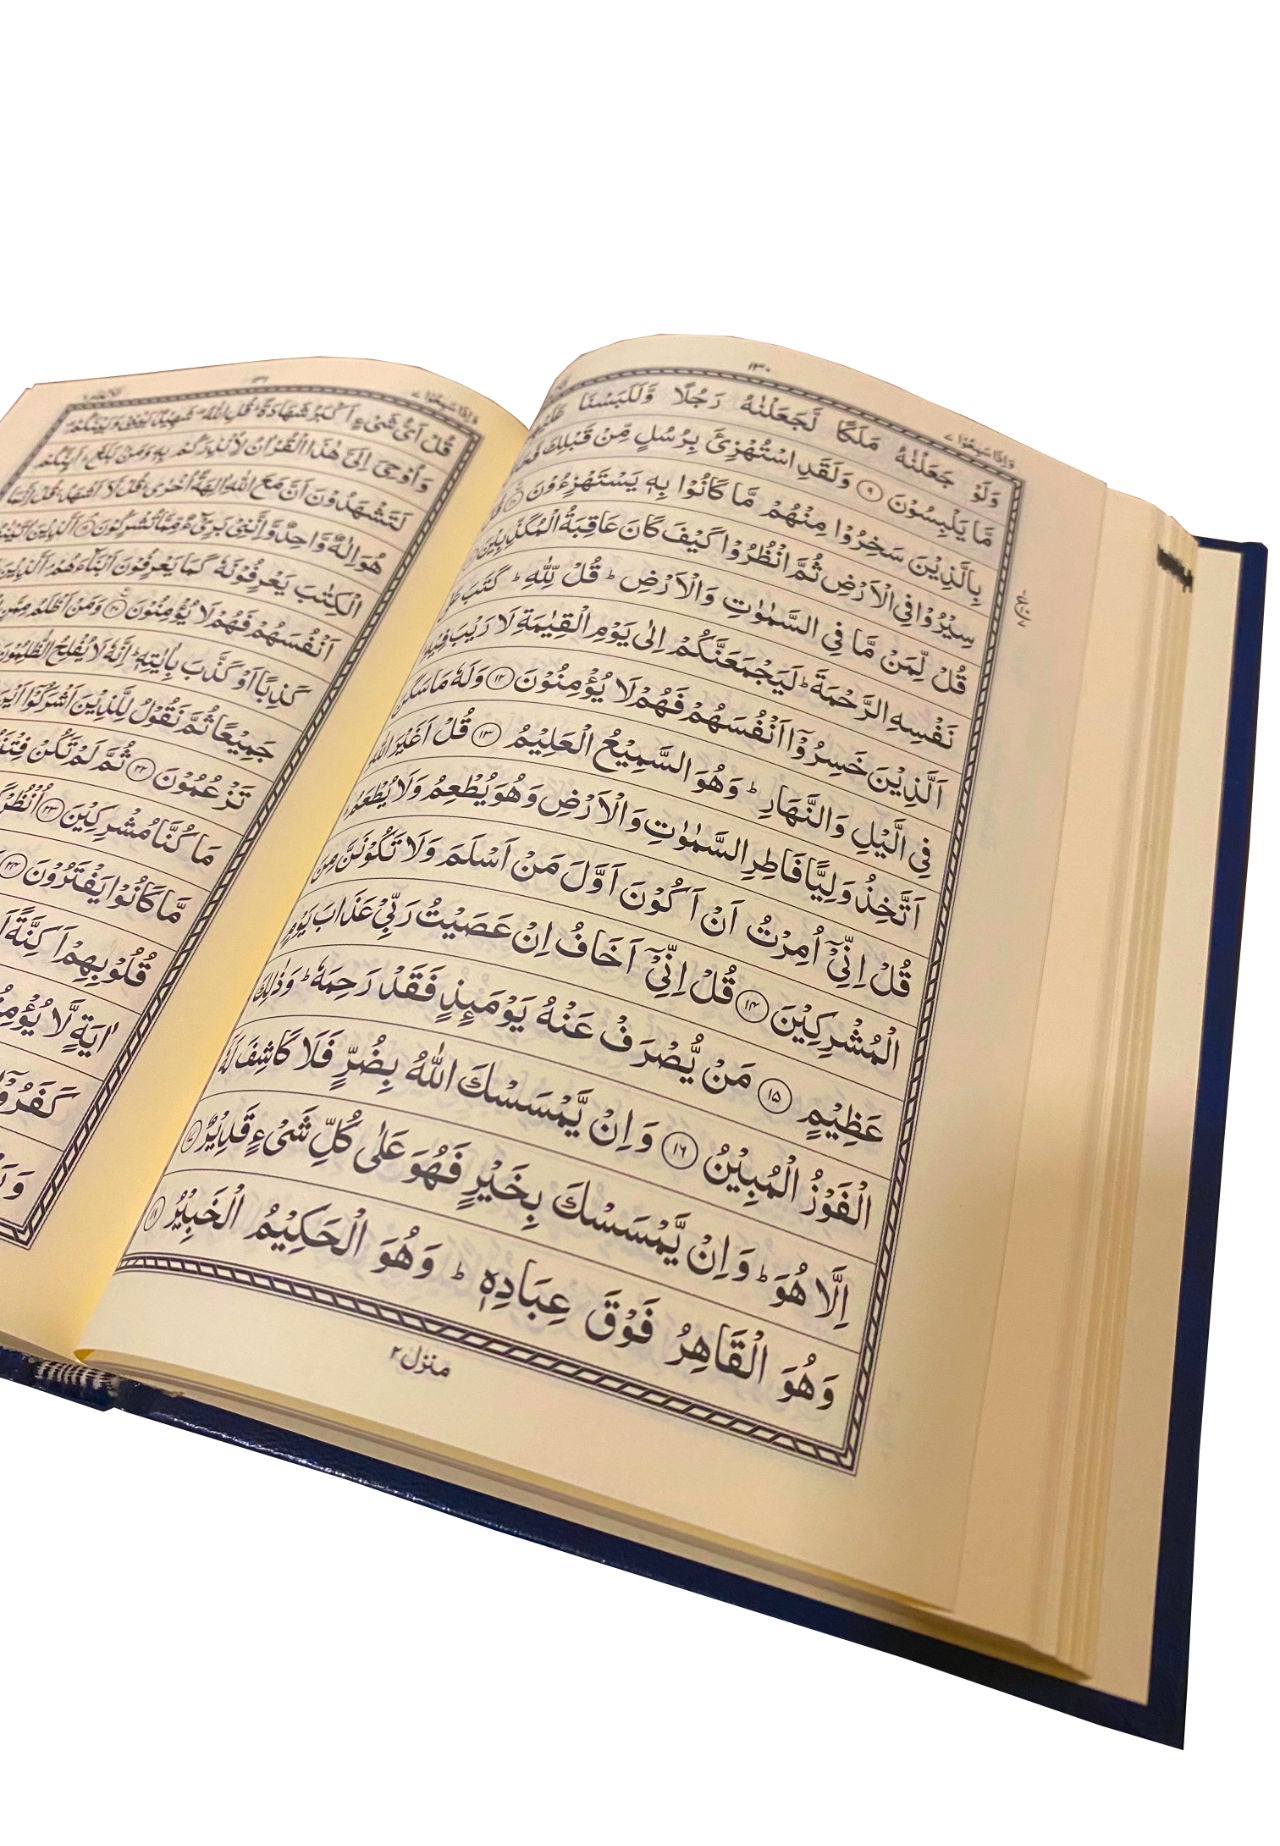 وَاِذَا سَمِعُوْا ٧
١٣٠
وَلَوْ جَعَلْنٰهُ مَلَكًا لَّجَعَلْنٰهُ رَجُلًا وَّلَلَبَسْنَا
مَّا يَلْبِسُوْنَ ﴿٩﴾ وَلَقَدِ اسْتُهْزِئَ بِرُسُلٍ مِّنْ قَبْلِكَ
بِالَّذِيْنَ سَخِرُوْا مِنْهُمْ مَّا كَانُوْا بِهٖ يَسْتَهْزِءُوْنَ ﴿١٠﴾
سِيْرُوْا فِى الْاَرْضِ ثُمَّ انْظُرُوْا كَيْفَ كَانَ عَاقِبَةُ الْمُكَذِّبِيْنَ
قُلْ لِّمَنْ مَّا فِى السَّمٰوٰتِ وَالْاَرْضِ ؕ قُلْ لِّلّٰهِ ؕ كَتَبَ
نَفْسِهِ الرَّحْمَةَ ؕ لَيَجْمَعَنَّكُمْ اِلٰى يَوْمِ الْقِيٰمَةِ لَا رَيْبَ فِيْهِ
اَلَّذِيْنَ خَسِرُوْۤا اَنْفُسَهُمْ فَهُمْ لَا يُؤْمِنُوْنَ ﴿١٢﴾ وَلَهٗ مَا سَكَنَ
فِى الَّيْلِ وَالنَّهَارِ ؕ وَهُوَ السَّمِيْعُ الْعَلِيْمُ ﴿١٣﴾ قُلْ اَغَيْرَ اللّٰهِ
اَتَّخِذُ وَلِيًّا فَاطِرِ السَّمٰوٰتِ وَالْاَرْضِ وَهُوَ يُطْعِمُ وَلَا يُطْعَمُ
قُلْ اِنِّىْۤ اُمِرْتُ اَنْ اَكُوْنَ اَوَّلَ مَنْ اَسْلَمَ وَلَا تَكُوْنَنَّ مِنَ
الْمُشْرِكِيْنَ ﴿١٤﴾ قُلْ اِنِّىْۤ اَخَافُ اِنْ عَصَيْتُ رَبِّىْ عَذَابَ يَوْمٍ
عَظِيْمٍ ﴿١٥﴾ مَنْ يُّصْرَفْ عَنْهُ يَوْمَىِٕذٍ فَقَدْ رَحِمَهٗ ؕ وَذٰلِكَ
الْفَوْزُ الْمُبِيْنُ ﴿١٦﴾ وَاِنْ يَّمْسَسْكَ اللّٰهُ بِضُرٍّ فَلَا كَاشِفَ لَهٗۤ
اِلَّا هُوَ ؕ وَاِنْ يَّمْسَسْكَ بِخَيْرٍ فَهُوَ عَلٰى كُلِّ شَىْءٍ قَدِيْرٌ ﴿١٧﴾
وَهُوَ الْقَاهِرُ فَوْقَ عِبَادِهٖ ؕ وَهُوَ الْحَكِيْمُ الْخَبِيْرُ ﴿١٨﴾
منزل ٢
وَاِذَا سَمِعُوْا ٧
قُلْ اَىُّ شَىْءٍ اَكْبَرُ شَهَادَةً ؕ قُلِ اللّٰهُ شَهِيْدٌۢ بَيْنِىْ وَبَيْنَكُمْ
وَاُوْحِىَ اِلَىَّ هٰذَا الْقُرْاٰنُ لِاُنْذِرَكُمْ بِهٖ وَمَنْۢ بَلَغَ ؕ اَىِٕنَّكُمْ
لَتَشْهَدُوْنَ اَنَّ مَعَ اللّٰهِ اٰلِهَةً اُخْرٰى ؕ قُلْ لَّاۤ اَشْهَدُ ۚ قُلْ اِنَّمَا
هُوَ اِلٰهٌ وَّاحِدٌ وَّاِنَّنِىْ بَرِىْٓءٌ مِّمَّا تُشْرِكُوْنَ ﴿١٩﴾ اَلَّذِيْنَ اٰتَيْنٰهُمُ
الْكِتٰبَ يَعْرِفُوْنَهٗ كَمَا يَعْرِفُوْنَ اَبْنَآءَهُمْ ۘ اَلَّذِيْنَ
اَنْفُسَهُمْ فَهُمْ لَا يُؤْمِنُوْنَ ﴿٢٠﴾ وَمَنْ اَظْلَمُ مِمَّنِ
كَذِبًا اَوْ كَذَّبَ بِاٰيٰتِهٖ ؕ اِنَّهٗ لَا يُفْلِحُ الظّٰلِمُوْنَ
جَمِيْعًا ثُمَّ نَقُوْلُ لِلَّذِيْنَ اَشْرَكُوْۤا اَيْنَ
تَزْعُمُوْنَ ﴿٢٢﴾ ثُمَّ لَمْ تَكُنْ
مَا كُنَّا مُشْرِكِيْنَ ﴿٢٣﴾ اُنْظُرْ
مَّا كَانُوْا يَفْتَرُوْنَ ﴿٢٤﴾
قُلُوْبِهِمْ اَكِنَّةً
اٰيَةٍ لَّا
كَفَرُوْۤا